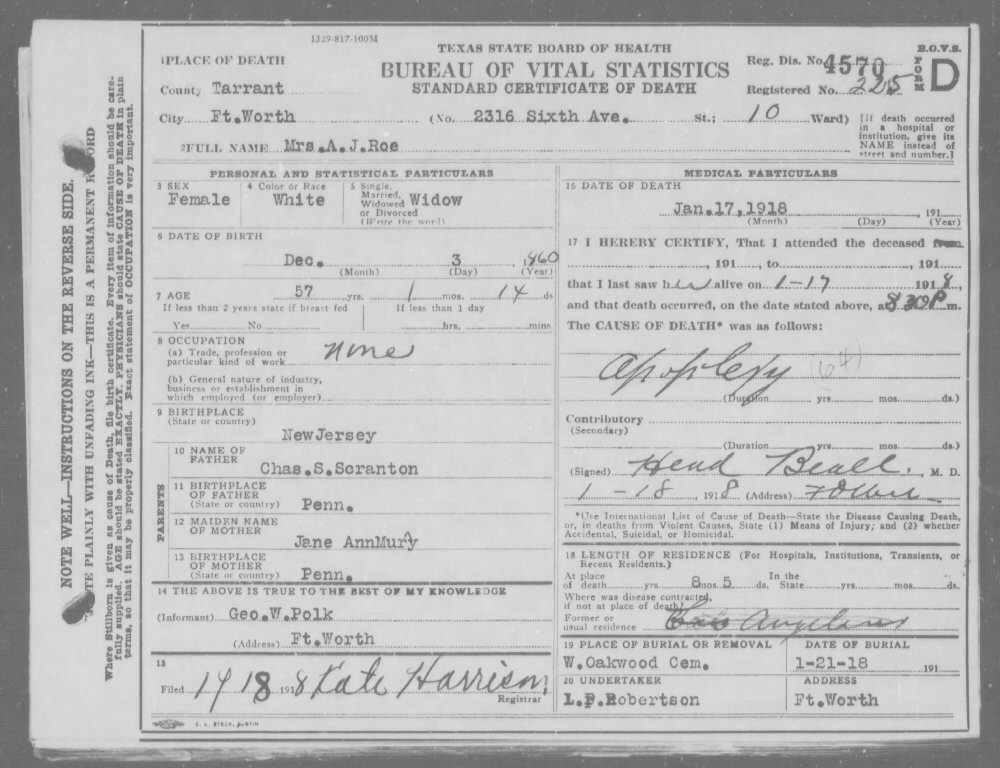 1329-817-100M
TEXAS STATE BOARD OF HEALTH
B.O.V.S.
1PLACE OF DEATH
BUREAU OF VITAL STATISTICS
Reg. Dis. No. 4570
FORM D
County Tarrant
STANDARD CERTIFICATE OF DEATH
Registered No. 225
City Ft.Worth (No. 2316 Sixth Ave. St.; 10 Ward)
[If death occurred in a hospital or institution, give its NAME instead of street and number.]
2FULL NAME Mrs.A.J.Roe
PERSONAL AND STATISTICAL PARTICULARS
3 SEX
Female
4 Color or Race
White
5 Single, Married, Widowed or Divorced (Write the word)
Widow
6 DATE OF BIRTH
Dec. 3 , 1860
(Month) (Day) (Year)
7 AGE
57 yrs. 1 mos. 14 ds
If less than 2 years state if breast fed
If less than 1 day
Yes No hrs. mins
8 OCCUPATION
(a) Trade, profession or
particular kind of work none
(b) General nature of industry,
business or establishment in
which employed (or employer)
9 BIRTHPLACE
(State or country)
NewJersey
PARENTS
10 NAME OF
FATHER
Chas.S.Scranton
11 BIRTHPLACE
OF FATHER
(State or country) Penn.
12 MAIDEN NAME
OF MOTHER
Jane AnnMury
13 BIRTHPLACE
OF MOTHER
(State or country) Penn.
14 THE ABOVE IS TRUE TO THE BEST OF MY KNOWLEDGE
(Informant) Geo.W.Polk
(Address) Ft.Worth
15
Filed 1/18 1918 Kate Harrison
Registrar
MEDICAL PARTICULARS
16 DATE OF DEATH
Jan.17,1918 , 191
(Month) (Day) (Year)
17 I HEREBY CERTIFY, That I attended the deceased from
, 191 , to , 191
that I last saw her alive on 1-17 1918,
and that death occurred, on the date stated above, at 8 30 P m.
The CAUSE OF DEATH* was as follows:
Apoplexy (64)
(Duration yrs. mos. ds.)
Contributory
(Secondary)
(Duration yrs. mos. ds.)
(Signed) Head Beall. , M. D.
1-18, 1918 (Address)
*Use International List of Cause of Death—State the Disease Causing Death,
or, in deaths from Violent Causes, State (1) Means of Injury; and (2) whether
Accidental, Suicidal, or Homicidal.
18 LENGTH OF RESIDENCE (For Hospitals, Institutions, Transients, or
Recent Residents.)
At place of death yrs. 8 mos. 5 ds. In the State yrs. mos. ds.
Where was disease contracted,
if not at place of death?
Former or
usual residence Angeles
19 PLACE OF BURIAL OR REMOVAL
W.Oakwood Cem.
DATE OF BURIAL
1-21-18 191
20 UNDERTAKER
L.P.Robertson
ADDRESS
Ft.Worth
C. L. STECK, AUSTIN
NOTE WELL—INSTRUCTIONS ON THE REVERSE SIDE.
PLAINLY WITH UNFADING INK—THIS IS A PERMANENT RECORD
Where Stillborn is given as cause of Death, file birth certificate. Every item of information should be care-
fully supplied. AGE should be stated EXACTLY. PHYSICIANS should state CAUSE OF DEATH in plain
terms, so that it may be properly classified. Exact statement of OCCUPATION is very important.